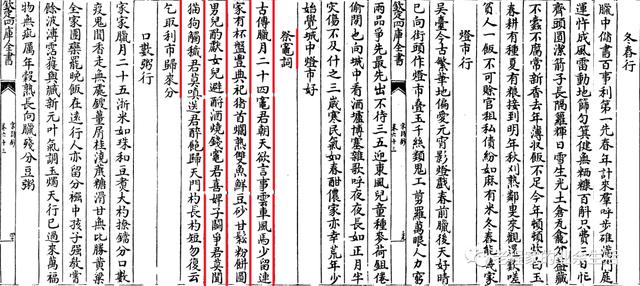 冬舂行
臘中儲書百事利第一先舂年計米羣呼步碓滿門庭
運杵成風雷動地篩勻箕健無粞糠百斛只費三日忙
齊頭圓潔箭子長隔籮輝日雪生光土倉瓦龕分蓋藏
不蠹不腐常新香去年薄收飯不足今年頓頓炊白玉
春耕有種夏有糧接到明年秋刈熟鄰叟來觀還歎嗟
貧人一飯不可賒官租私債紛如麻有米冬舂能幾家
燈市行
吳臺今古繁華地偏愛元宵影燈戲春前臘後天好晴
已向街頭作燈市疊玉千絲類鬼工剪羅萬眼人力窮
兩品爭先最先出不待三五迎東風兒童種麥荷鉏倦
偷閒也向城中看酒壚博簺雜歌呼夜夜長如正月半
災傷不及什之三歲寒民氣如春酣儂家亦幸荒年少
始覺城中燈市好
祭竈詞
古傳臘月二十四竈君朝天欲言事雲車風馬少留連
家有杯盤豐典祀猪首爛熟雙魚鮮豆砂甘鬆粉餅團
男兒酌獻女兒避酹酒燒錢竈君喜婢子鬭爭君莫聞
猫狗觸穢君莫嗔送君醉飽歸天門杓長杓短勿復云
乞取利市歸來分
口數粥行
家家臘月二十五淅米如珠和豆煮大杓撩鐺分口數
疫鬼聞香走無處鎪薑屑桂澆蔗糖滑甘無比勝黃粱
全家團欒罷晚飯在遠行人亦留分襁中孩子强教嘗
餘波溥霑獲與臧新元叶氣調玉燭天行已過來萬福
物無疵厲年穀熟長向臘殘分豆粥
欽定四庫全書
宋詩鈔
卷六十三